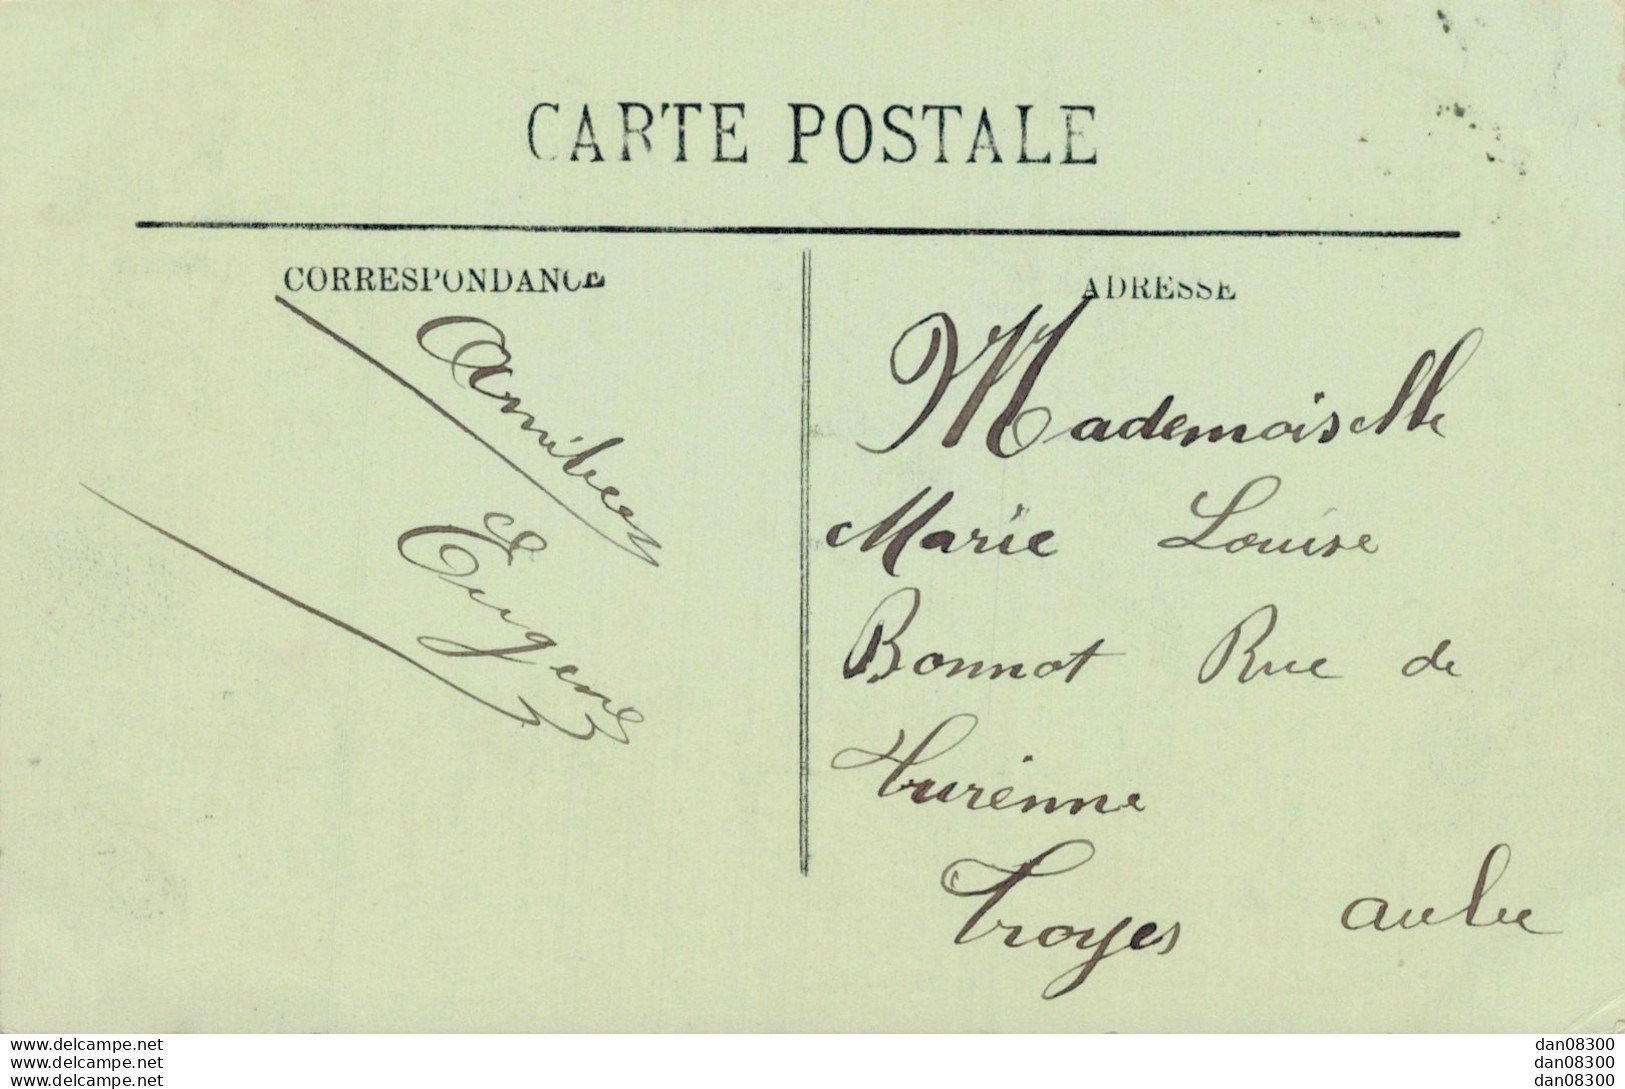 CARTE POSTALE
CORRESPONDANCE
Eugene
ADRESSE
Mademoiselle
Marie Louise
Bonnot Rue de
Turenne
Troyes aube
www.delcampe.net
www.delcampe.net
www.delcampe.net
dan08300
dan08300
dan08300